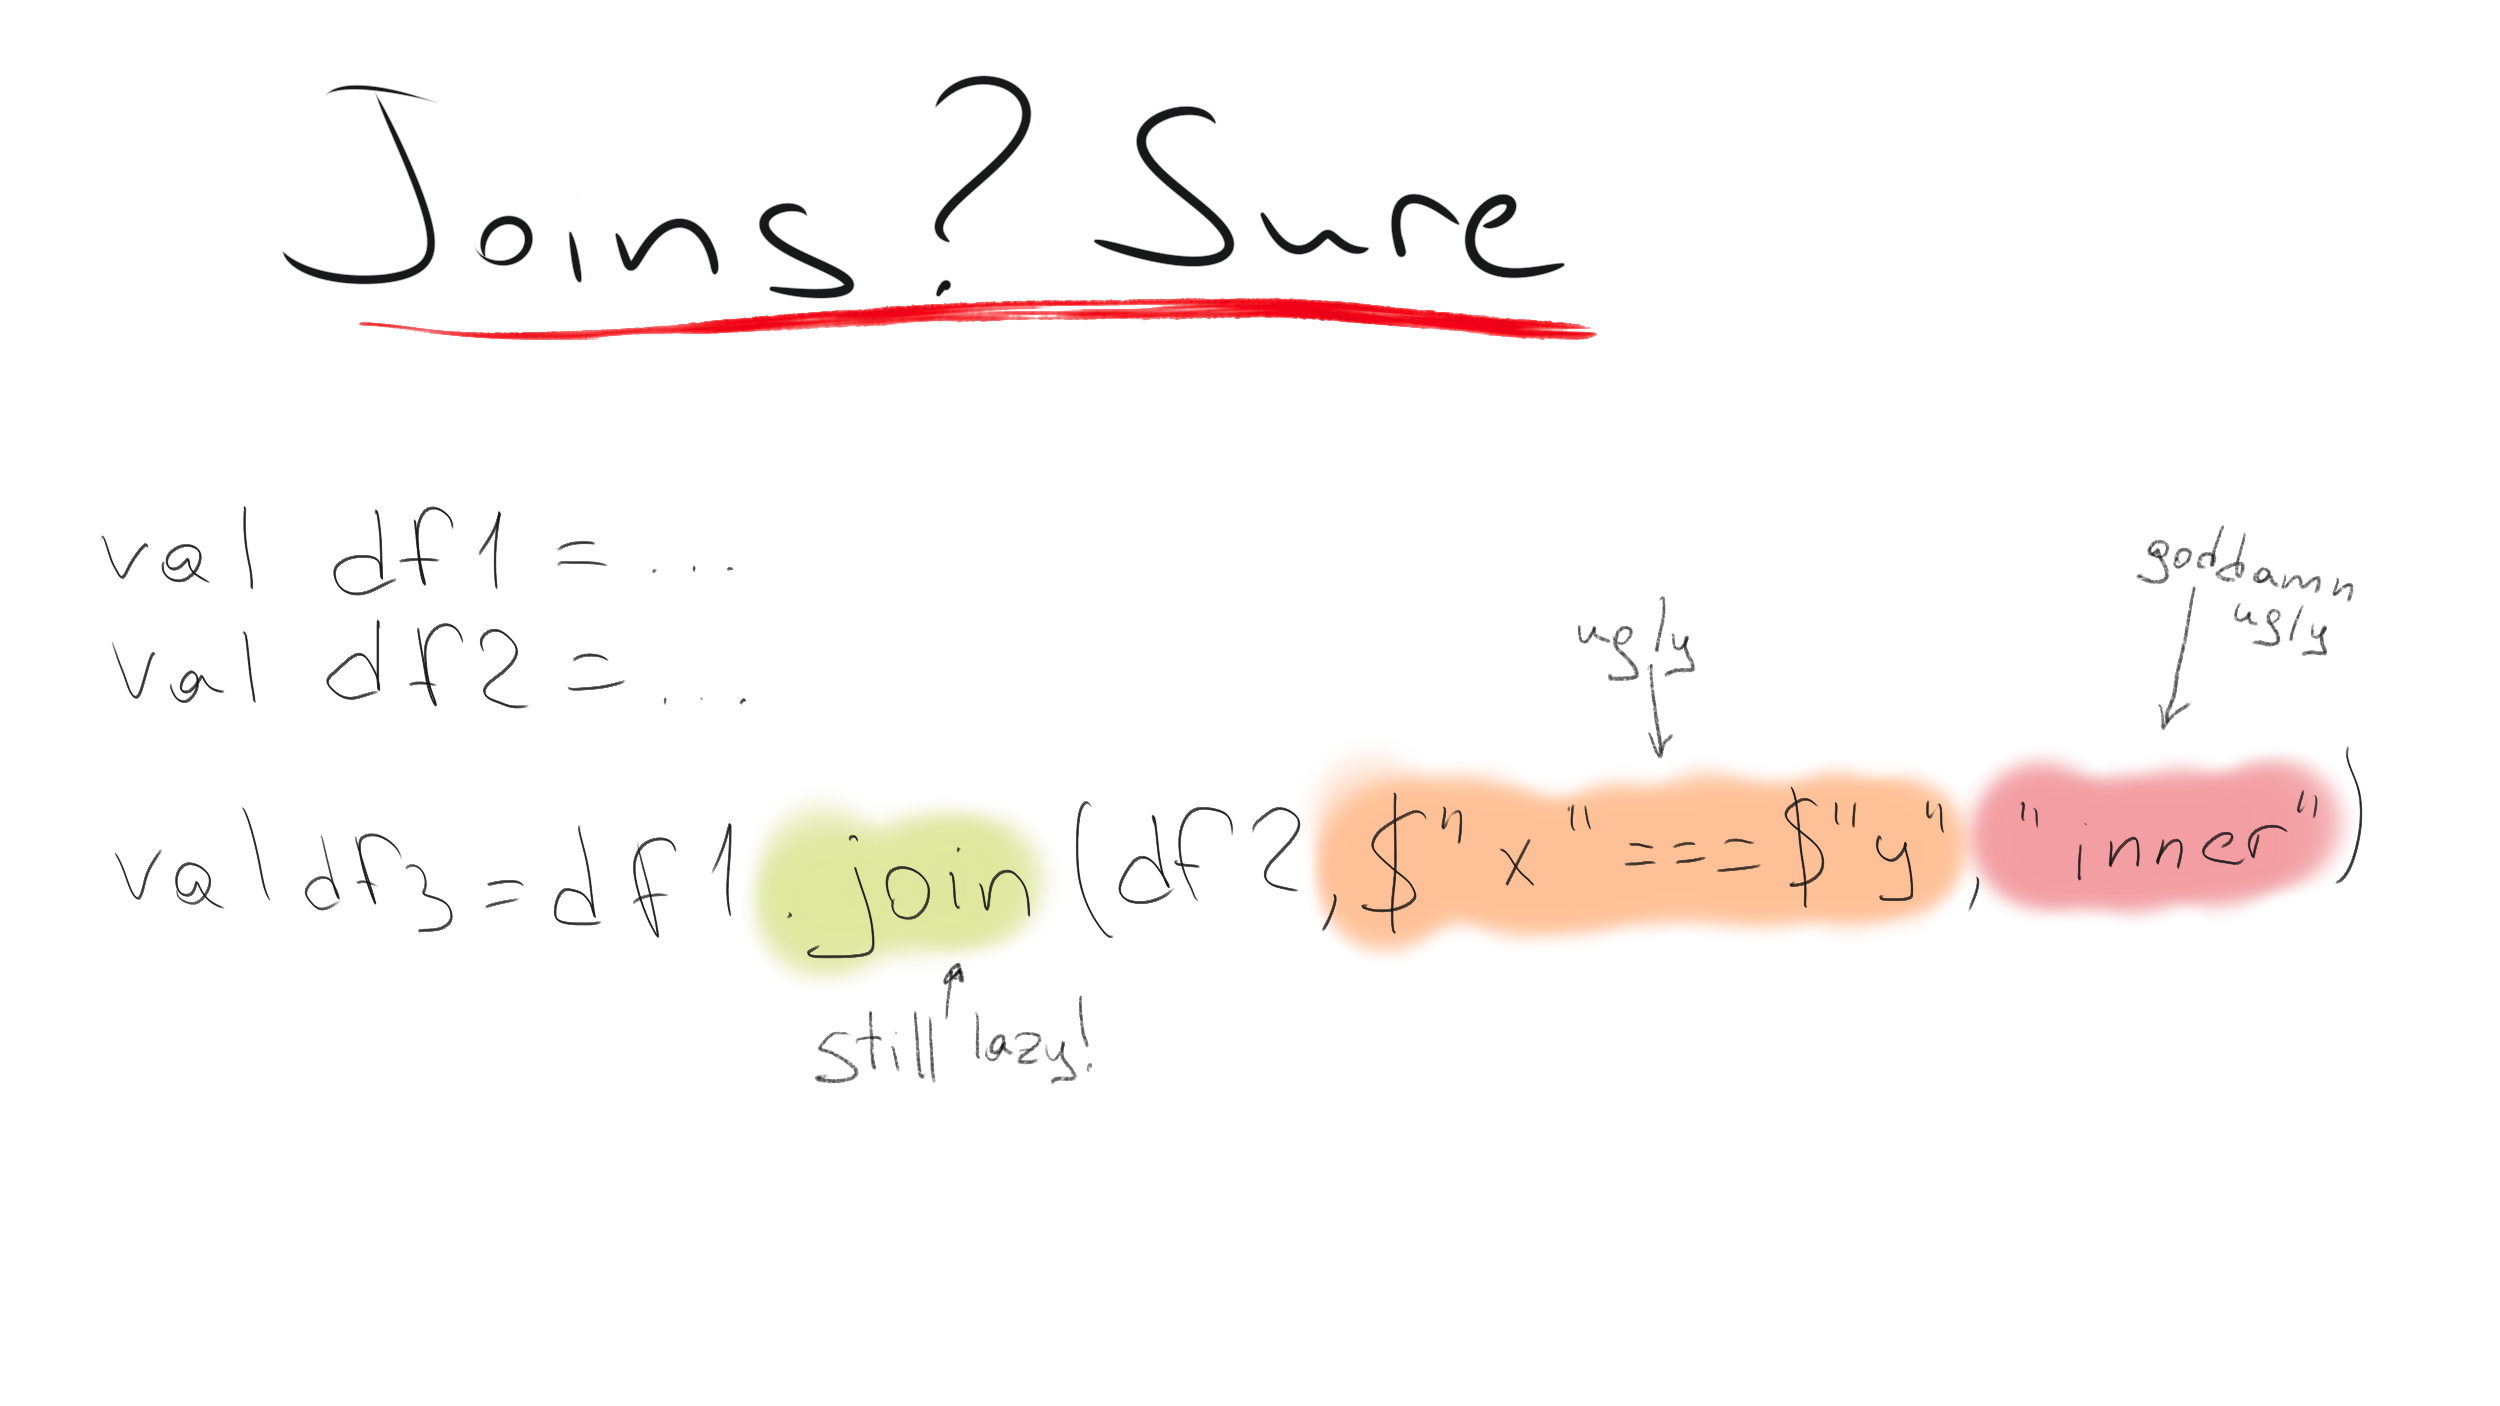 Joins? Sure
val df1 = ...
val df2 = ...
goddamn
ugly
ugly
val df3 = df1.join(df2, $"x" === $"y", "inner")
still lazy!